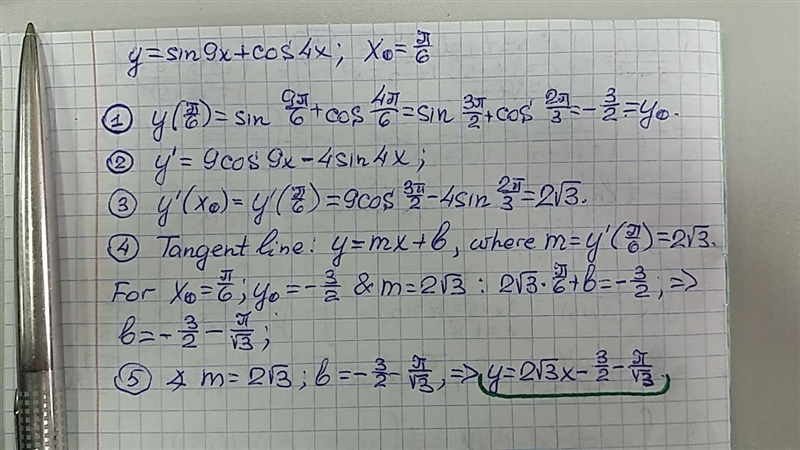 y=sin9x+cos4x; x₀=π/6
① y(π/6)=sin 9π/6+cos 4π/6=sin 3π/2+cos 2π/3=-3/2=y₀.
② y'=9cos9x-4sin4x;
③ y'(x₀)=y'(π/6)=9cos 3π/2-4sin 2π/3=2√3.
④ Tangent line: y=mx+b, where m=y'(π/6)=2√3.
For x₀=π/6; y₀=-3/2 & m=2√3: 2√3·π/6+b=-3/2; =>
b=-3/2-π/√3;
⑤ ∡ m=2√3; b=-3/2-π/√3, => y=2√3x-3/2-π/√3.